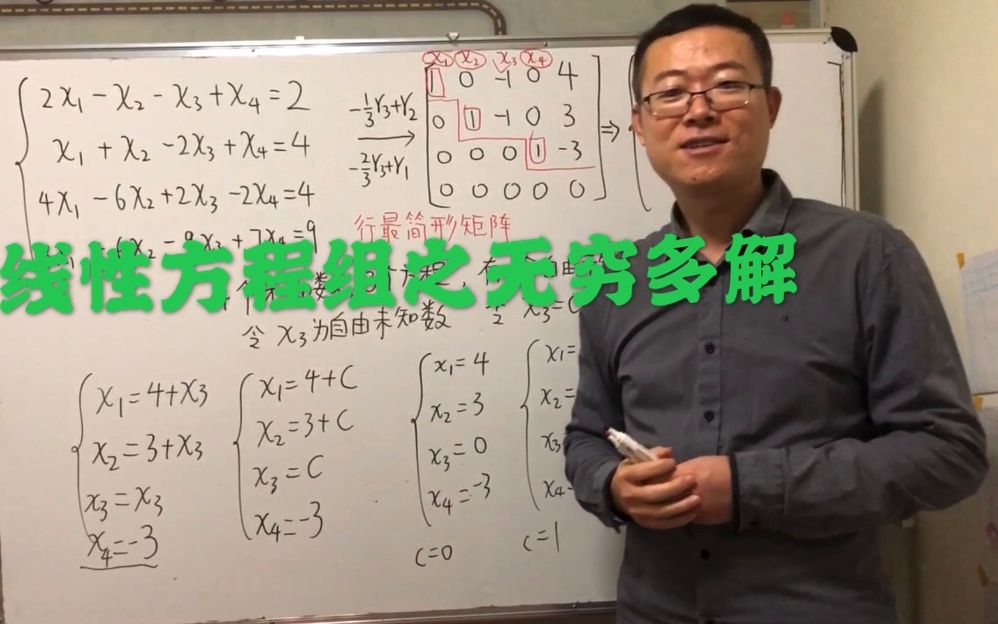 2x₁-x₂-x₃+x₄=2
x₁+x₂-2x₃+x₄=4
4x₁-6x₂+2x₃-2x₄=4
-9x₃+7x₄=9
-1/3r₃+r₂
-2/3r₃+r₁
x₁ x₂ x₃ x₄
1 0 -1 0 4
0 1 -1 0 3
0 0 0 1 -3
0 0 0 0 0
⇒
行最简形矩阵
线性方程组之无穷多解
令 x₃为自由未知数 令 x₃=C
x₁=4+x₃
x₂=3+x₃
x₃=x₃
x₄=-3
x₁=4+C
x₂=3+C
x₃=C
x₄=-3
x₁=4
x₂=3
x₃=0
x₄=-3
C=0
x₁=
x₂=
x₃
x₄
C=1